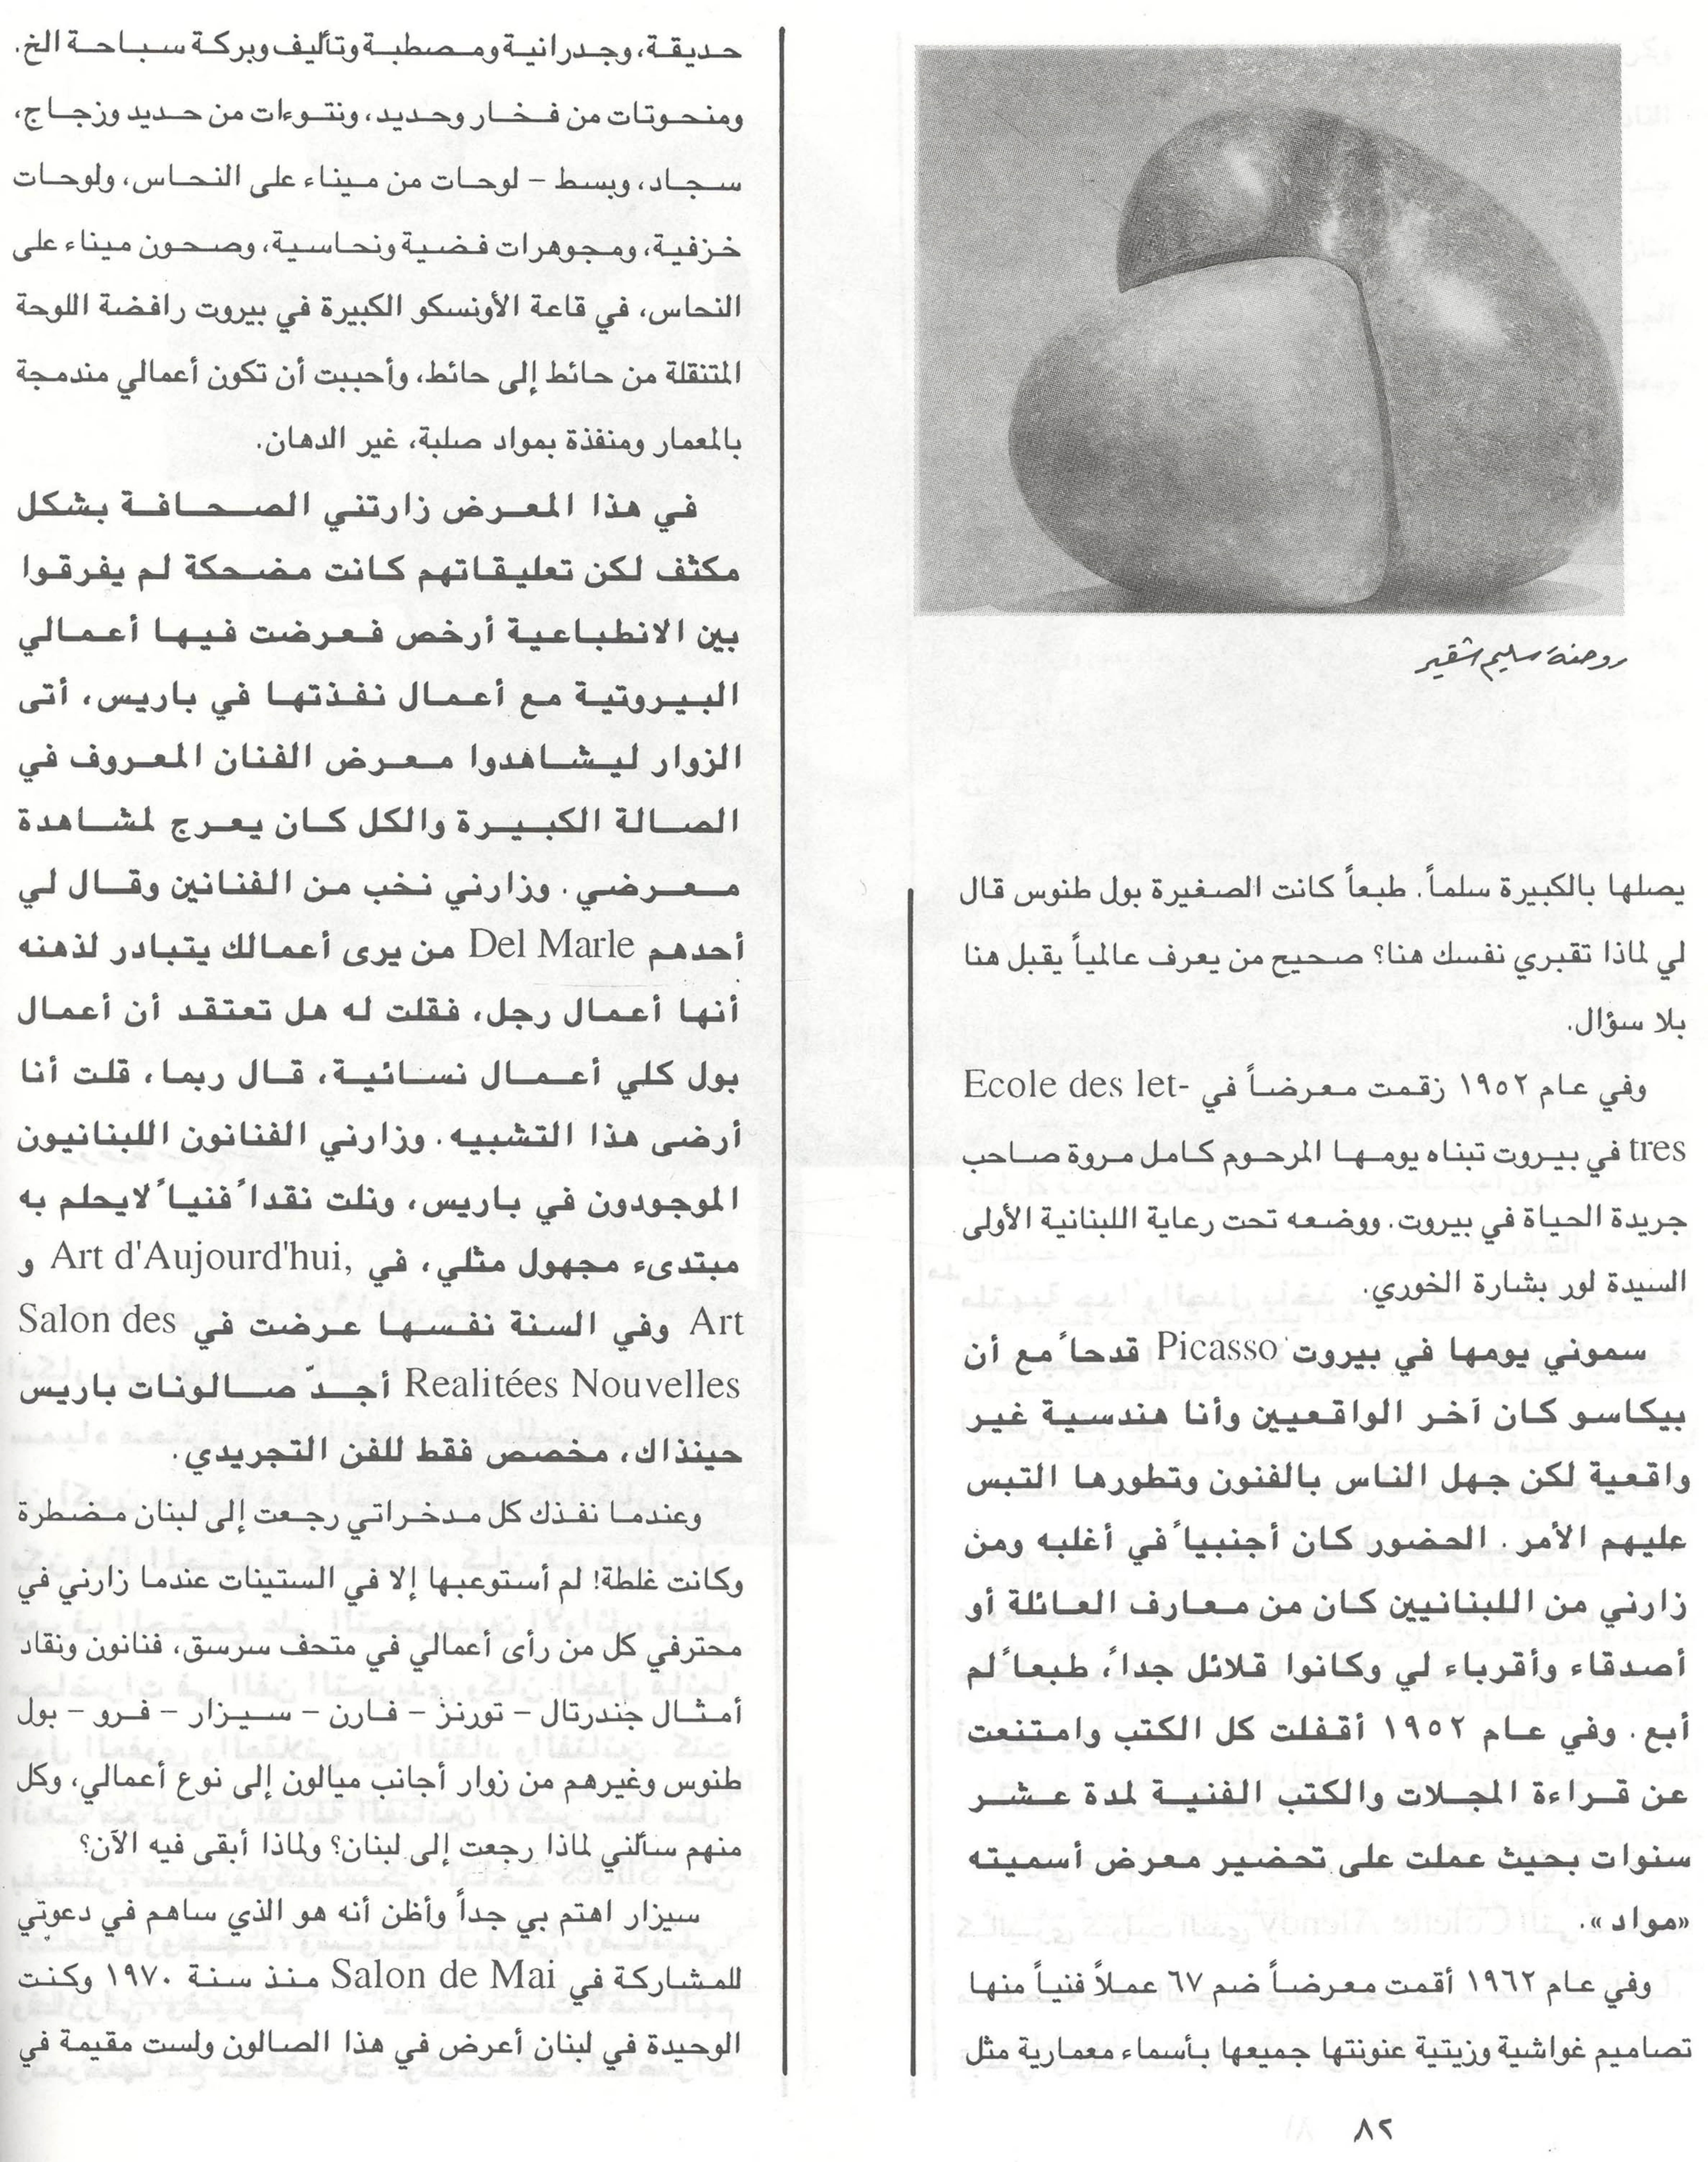 سلوى روضة شقير
يصلها بالكبيرة سلماً. طبعاً كانت الصغيرة بول طنوس قال
لي لماذا تقبري نفسك هنا؟ صحيح من يعرف عالمياً يقبل هنا
بلا سؤال.
وفي عام ١٩٥٢ زقمت معرضاً في Ecole des let-
tres في بيروت تبناه يومها المرحوم كامل مروة صاحب
جريدة الحياة في بيروت. ووضعه تحت رعاية اللبنانية الأولى
السيدة لور بشارة الخوري.
سموني يومها في بيروت Picasso قدحاً مع أن
بيكاسو كان آخر الواقعيين وأنا هندسية غير
واقعية لكن جهل الناس بالفنون وتطورها التبس
عليهم الأمر. الحضور كان أجنبياً في أغلبه ومن
زارني من اللبنانيين كان من معارف العائلة أو
أصدقاء وأقرباء لي وكانوا قلائل جداً، طبعاً لم
أبع. وفي عام ١٩٥٢ أقفلت كل الكتب وامتنعت
عن قراءة المجلات والكتب الفنية لمدة عشر
سنوات بحيث عملت على تحضير معرض أسميته
«مواد».
وفي عام ١٩٦٢ أقمت معرضاً ضم ٦٧ عملاً فنياً منها
تصاميم غواشية وزيتية عنونتها جميعها بأسماء معمارية مثل
حديقة، وجدرانية ومصطبة وتأليف وبركة سباحة الخ.
ومنحوتات من فخار وحديد، ونتوءات من حديد وزجاج،
سجاد، وبسط – لوحات من ميناء على النحاس، ولوحات
خزفية، ومجوهرات فضية ونحاسية، وصحون ميناء على
النحاس، في قاعة الأونسكو الكبيرة في بيروت رافضة اللوحة
المتنقلة من حائط إلى حائط، وأحببت أن تكون أعمالي مندمجة
بالمعمار ومنفذة بمواد صلبة، غير الدهان.
في هذا المعرض زارتني الصحافة بشكل
مكثف لكن تعليقاتهم كانت مضحكة لم يفرقوا
بين الانطباعية أرخص فعرضت فيها أعمالي
البيروتية مع أعمال نفذتها في باريس، أتى
الزوار ليشاهدوا معرض الفنان المعروف في
الصالة الكبيرة والكل كان يعرج لمشاهدة
معرضي. وزارني نخب من الفنانين وقال لي
أحدهم Del Marle من يرى أعمالك يتبادر لذهنه
أنها أعمال رجل، فقلت له هل تعتقد أن أعمال
بول كلي أعمال نسائية، قال ربما، قلت أنا
أرضى هذا التشبيه. وزارني الفنانون اللبنانيون
الموجودون في باريس، ونلت نقداً فنياً لايحلم به
مبتدىء مجهول مثلي، في Art d'Aujourd'hui, و
Art وفي السنة نفسها عرضت في Salon des
Realitées Nouvelles أجدّ صالونات باريس
حينذاك، مخصص فقط للفن التجريدي.
وعندما نفذك كل مدخراتي رجعت إلى لبنان مضطرة
وكانت غلطة! لم أستوعبها إلا في الستينات عندما زارني في
محترفي كل من رأى أعمالي في متحف سرسق، فنانون ونقاد
أمثال جندرتال – تورنز – فارن – سيزار – فرو – بول
طنوس وغيرهم من زوار أجانب ميالون إلى نوع أعمالي، وكل
منهم سألني لماذا رجعت إلى لبنان؟ ولماذا أبقى فيه الآن؟
سيزار اهتم بي جداً وأظن أنه هو الذي ساهم في دعوتي
للمشاركة في Salon de Mai منذ سنة ١٩٧٠ وكنت
الوحيدة في لبنان أعرض في هذا الصالون ولست مقيمة في
٨٢